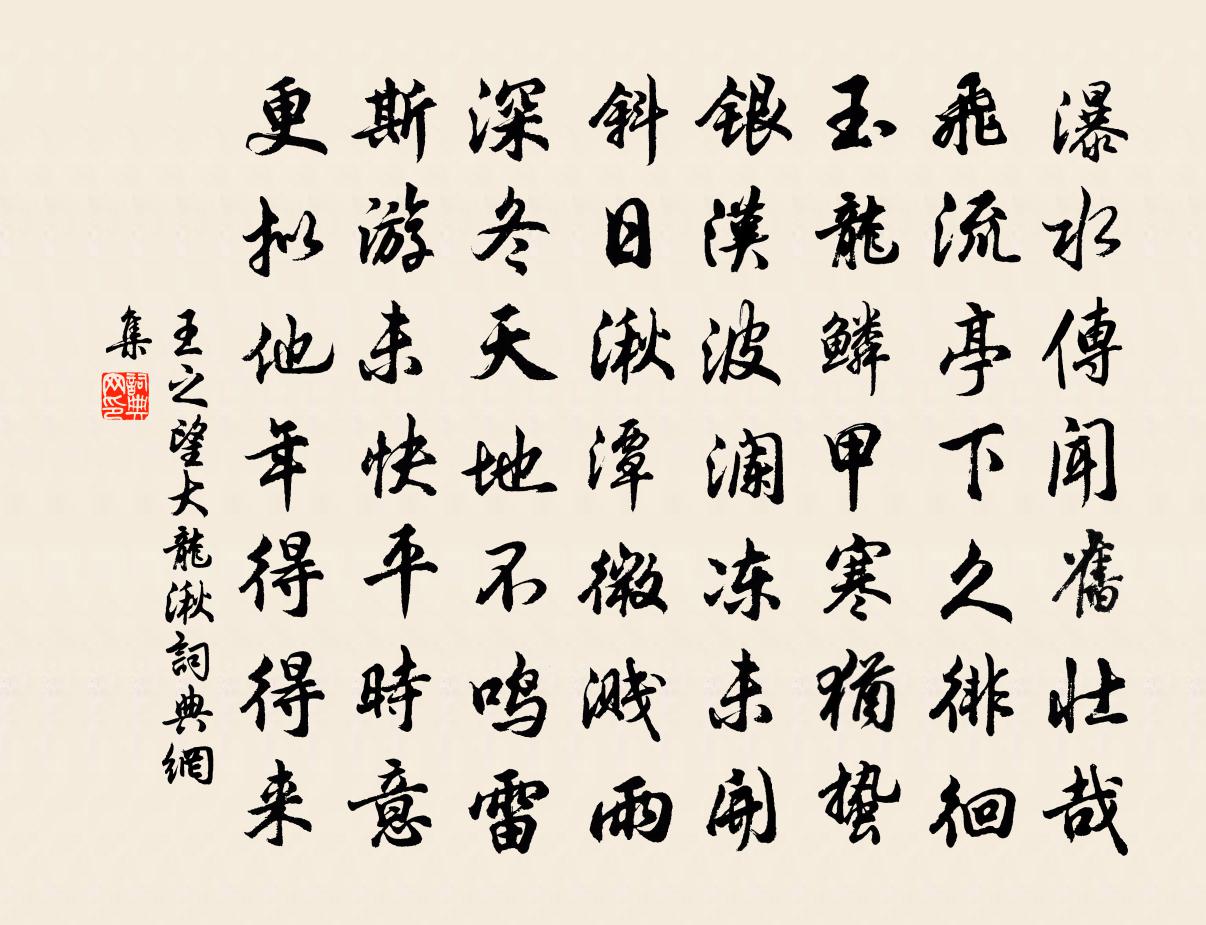 瀑水傳聞舊壯哉
飛流亭下久徘徊
玉龍鱗甲寒猶蟄
銀漢波澜冻未開
斜日湫潭微溅雨
深冬天地不鸣雷
斯游未快平時意
更拟他年得得来
王之望大龍湫詞典網
集
詞典
网印